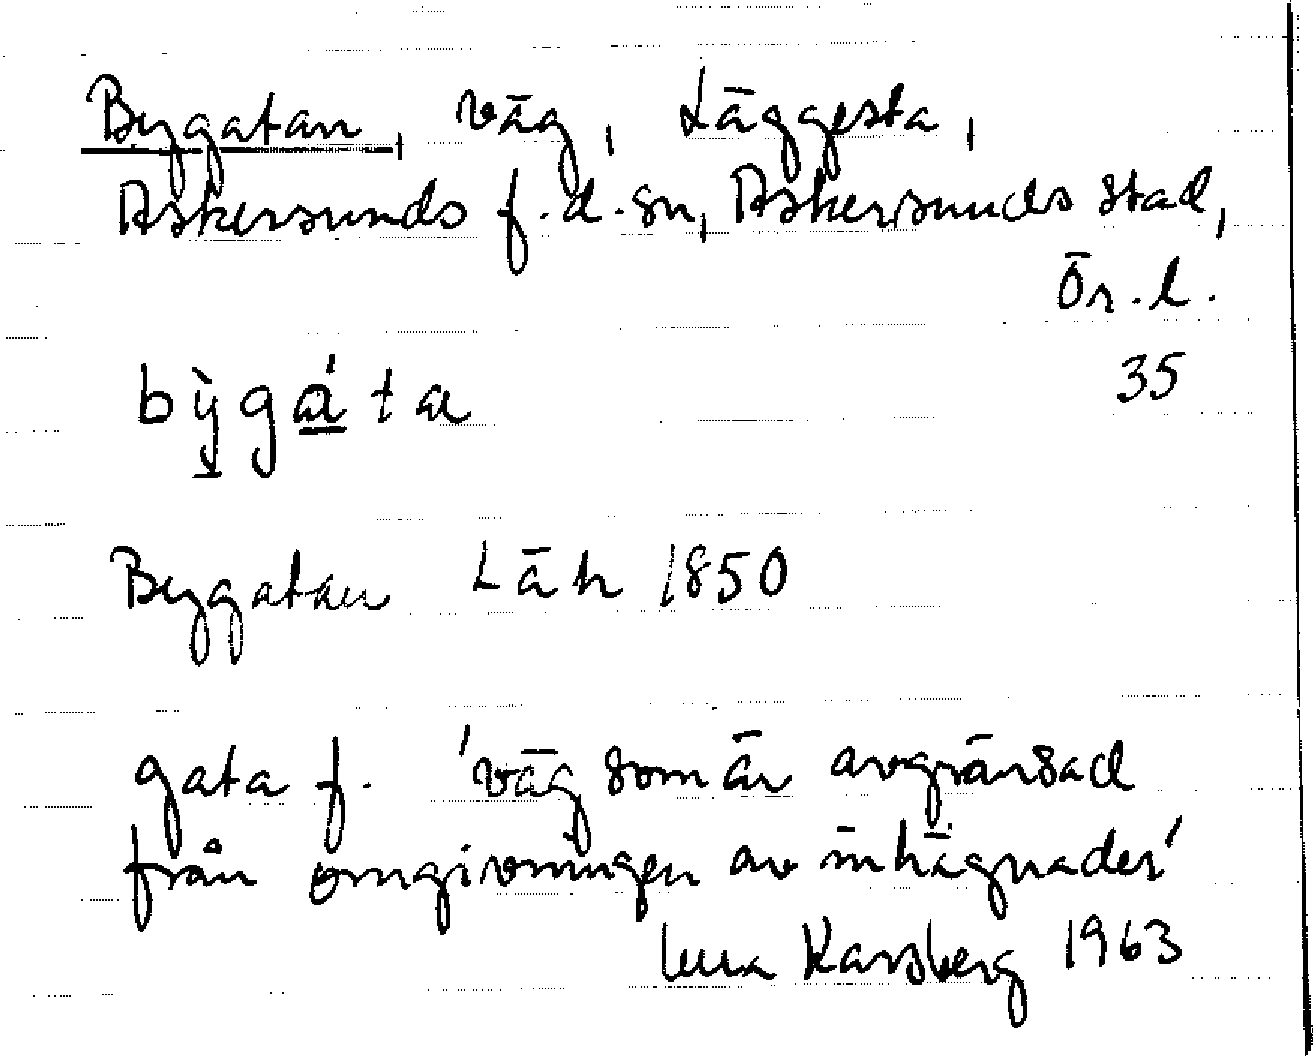 Bygatan, väg, Läggesta,
Askersunds f.d. sn, Askersunds stad,
Ör. l.
35
bỳgáta
Bygatan Läh 1850
gata f. 'väg som är avgränsad
från omgivningen av inhägnader'
Lena Karsberg 1963